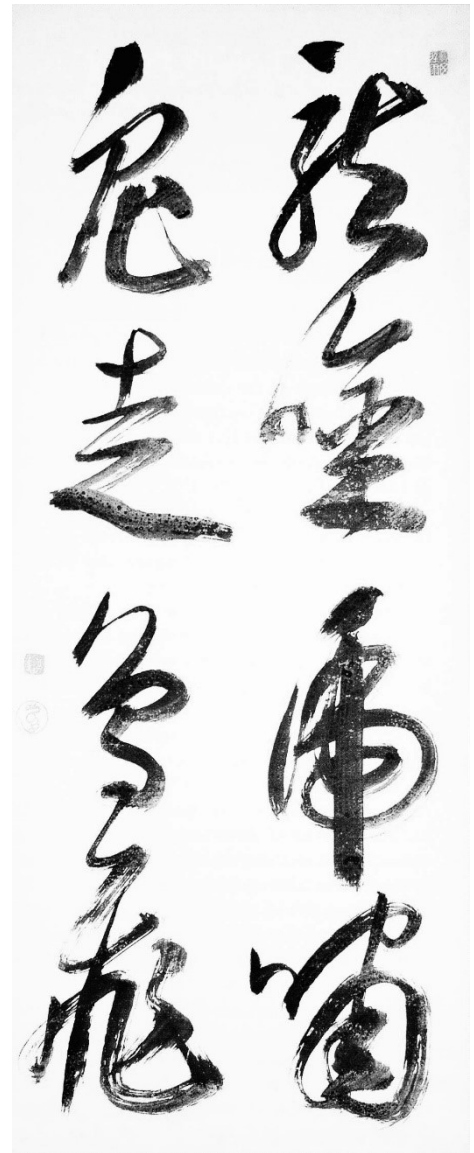 龍唫虎嘯
兔走烏飛